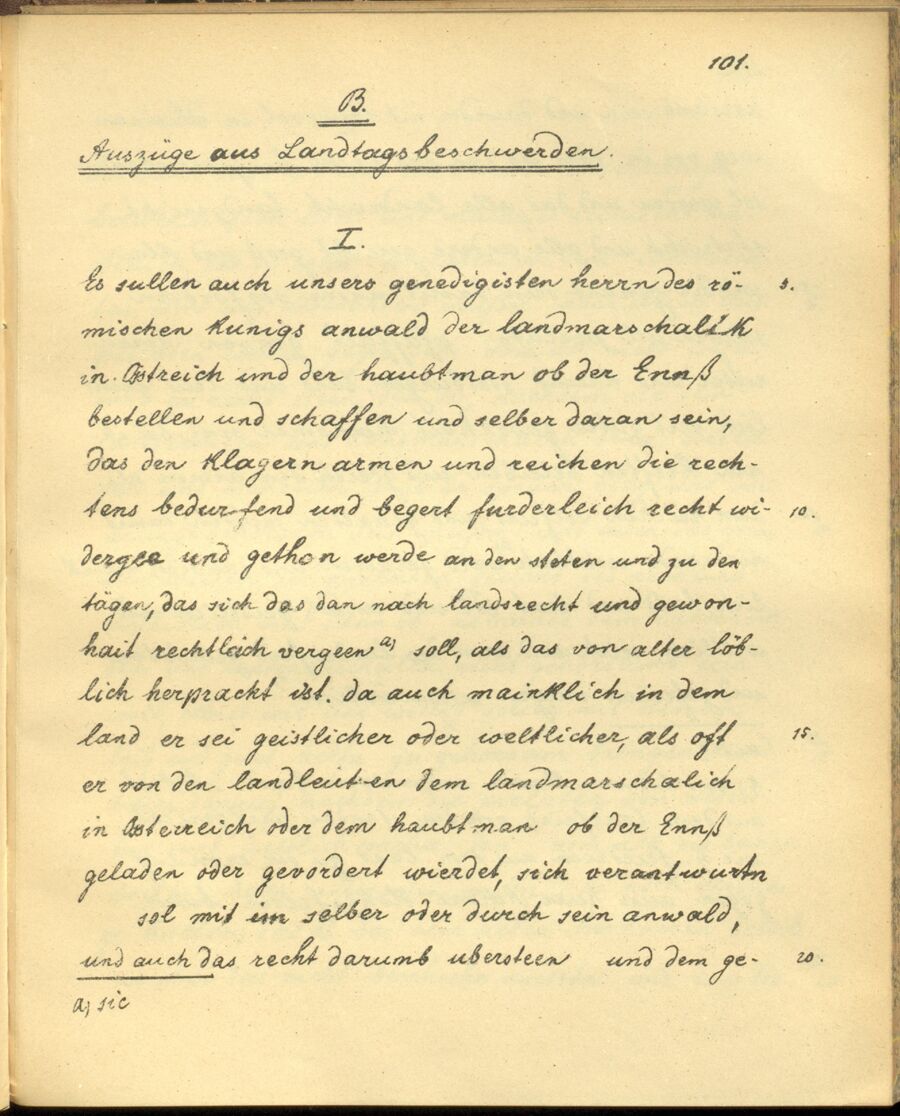 101.
B.
Auszüge aus Landtagsbeschwerden.
I.
Es sullen auch unsers genedigisten herrn des rö- 5.
mischen kunigs anwald der landmarschalik
in Ostreich und der haubtman ob der Ennß
bestellen und schaffen und selber daran sein,
das den klagern armen und reichen die rech-
tens bedurfend und begert furderleich recht wi- 10.
dergee und gethon werde an den steten und zu den
tägen, das sich das dan nach landsrecht und gewon-
hait rechtleich vergeen a) soll, als das von alter löb-
lich herpracht ist. da auch mainklich in dem
land er sei geistlicher oder weltlicher, als oft 15.
er von den landleuten dem landmarschalich
in Osterreich oder dem haubtman ob der Ennß
geladen oder gevordert wierdet, sich verantwurtn
sol mit im selber oder durch sein anwald,
und auch das recht darumb ubersteen und dem ge- 20.
a) sic